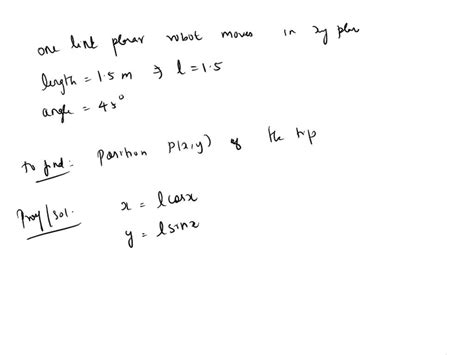 one link planar robot moves in xy plan
length = 1.5 m ⇒ l = 1.5
angle = 45°
To find: Position P(x,y) of the tip
Proof/Sol. x = l cosx
y = l sinx